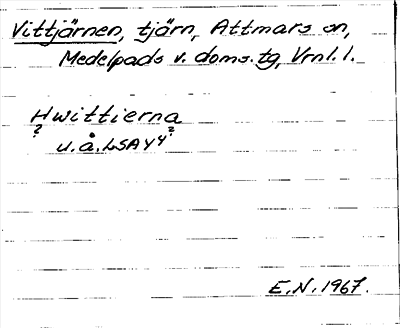 Vittjärnen, tjärn, Attmars sn,
Medelpads v. doms. tg, Vrnl. l.
Hwittierna
? ?
u.å. LSA Y 4
E.N. 1967.